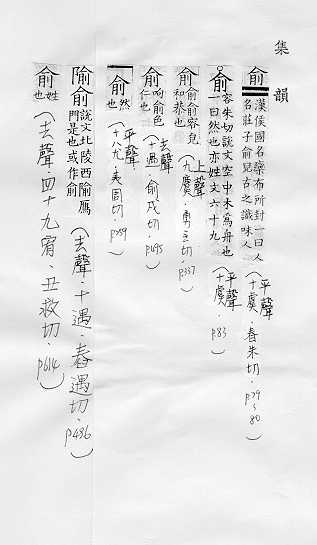 集韻
俞 漢侯國名欒布所封一曰人名莊子俞兒古之識味人（平聲十虞．春朱切．p79~80）
俞 容朱切說文空中木為舟也一曰然也亦姓文六十九（平聲十虞．p83）
俞 俞俞容皃和恭也（上聲九麌．勇主切．p337）
俞 呴俞色仁也（去聲十遇．俞戍切．p495）
俞 然也（平聲十八九．夷周切．p259）
隃俞 說文北陵西隃鴈門是也或作俞（去聲．十遇．舂遇切．p486）
俞 姓也（去聲．四十九宥．丑救切．p614）